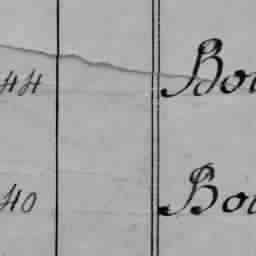 44 Bou
40 Bou